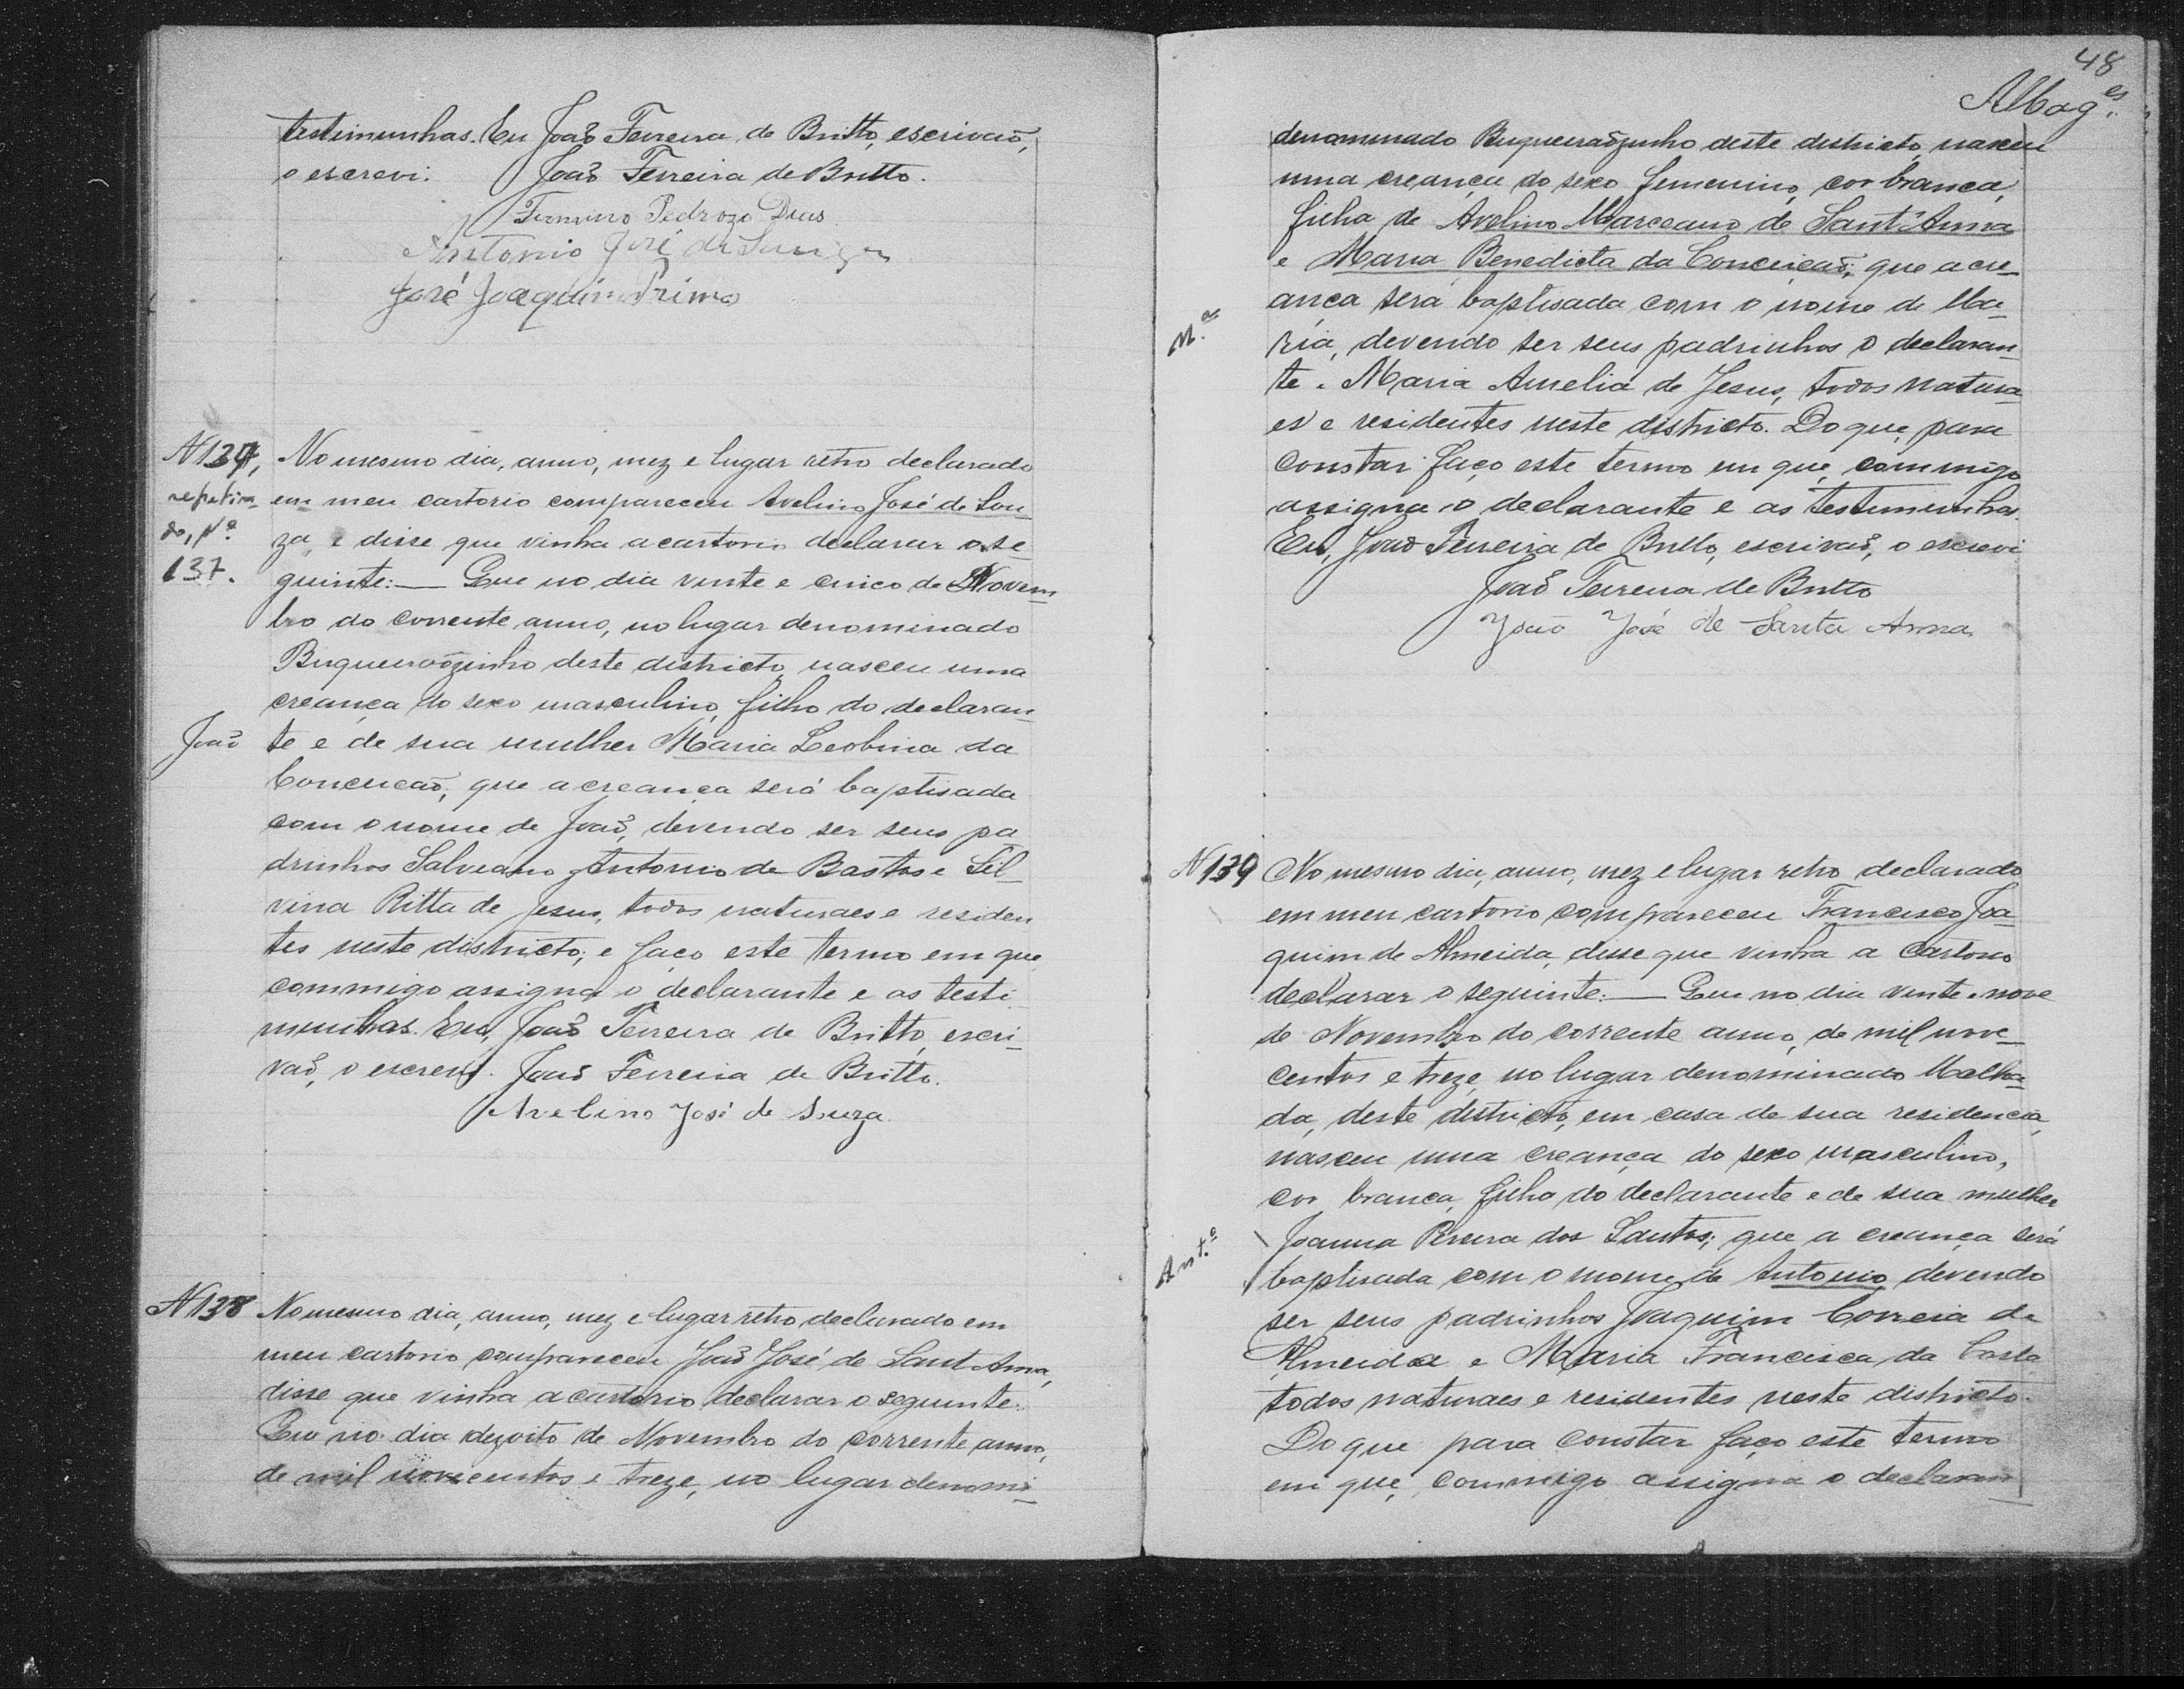 testimunhas. Eu João Ferreira de Britto, escrivaõ,
o escrevi. João Ferreira de Britto.
Firmino Pedrozo Dias
Antonio José de
José Joaquim Primo
N 137,
repetin
do, Nº
137.
No mesmo dia, anno, mez e lugar retro declarado
em meu cartorio compareceu Avelino José de Sou-
za, e disse que vinha a cartorio declarar o se
guinte:— Que no dia vinte e cinco de Novem
bro do corrente anno, no lugar denominado
Buqueiraõzinho deste districto, nasceu uma
creança do sexo masculino, filho do declaran-
João
te e de sua mulher Maria Leobina da
Conceicaõ, que a creança será baptisada
com o nome de João, devendo ser seus pa
drinhos Salveano Antonio de Bastos e Sil-
vina Ritta de Jesus, todos naturaes e residen
tes neste districto; e faço este termo em que,
commigo assigna o declarante e as testi
munhas. Eu, João Ferreira de Britto, escri-
vaõ, o escrevi. João Ferreira de Britto.
Avelino José de Souza.
N 138
No mesmo dia, anno, mez e lugar retro declarado em
meu cartorio compareceu João José de Sant Anna,
disse que vinha a cartorio declarar o seguinte:
Que no dia dezoito de Novembro do corrente anno,
de mil novecentos e treze, no lugar denomi-
48
Albag.es
denominado Buqueiraõzinho deste districto, nasceu
uma creança do sexo femenino, cor branca,
filha de Avelino Marceano de Sant'Anna
e Maria Benedicta da Conceicaõ; que a cre-
ança será baptisada com o nome de Ma-
M.ª
ria, devendo ser seus padrinhos o declaran
te e Maria Amelia de Jesus, todos natura
es e residentes neste districto. Do que, para
constar faço este termo em que, commigo
assigna o declarante e as testimunhas.
Eu, João Ferreira de Britto, escrivaõ, o escrevi.
João Ferreira de Britto
João José de Santa Anna
N 139
No mesmo dia, anno, mez e lugar retro declarado
em meu cartorio compareceu Francisco Joa-
quim de Almeida, disse que vinha a cartorio
declarar o seguinte:— Que no dia vinte e nove
de Novembro do corrente anno, de mil nove-
centos e treze, no lugar denominado Malha-
da, deste districto, em casa de sua residencia,
nasceu uma creança do sexo masculino,
cor branca, filho do declarante e de sua mulher
Joanna Pereira dos Santos; que a creança será
Ant.º
baptisada com o nome de Antonio, devendo
ser seus padrinhos Joaquim Correia de
Almeida e Maria Francisca da Costa
todos naturaes e residentes neste districto.
Do que para constar faço este termo
em que, commigo assigna o declaran